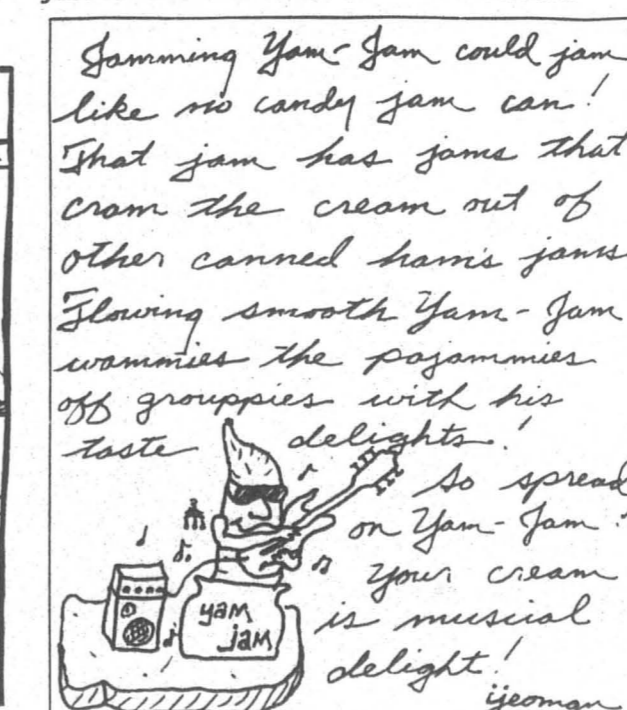 Jamming Yam-Jam could jam
like no candy jam can!
That jam has jams that
cram the cream out of
other canned ham's jams
Flowing smooth Yam-Jam
wammies the pajammies
off grouppies with his
taste delights!
So spread
on Yam-Jam!
Your cream
is musical
delight!
yam
jam
ijeoman